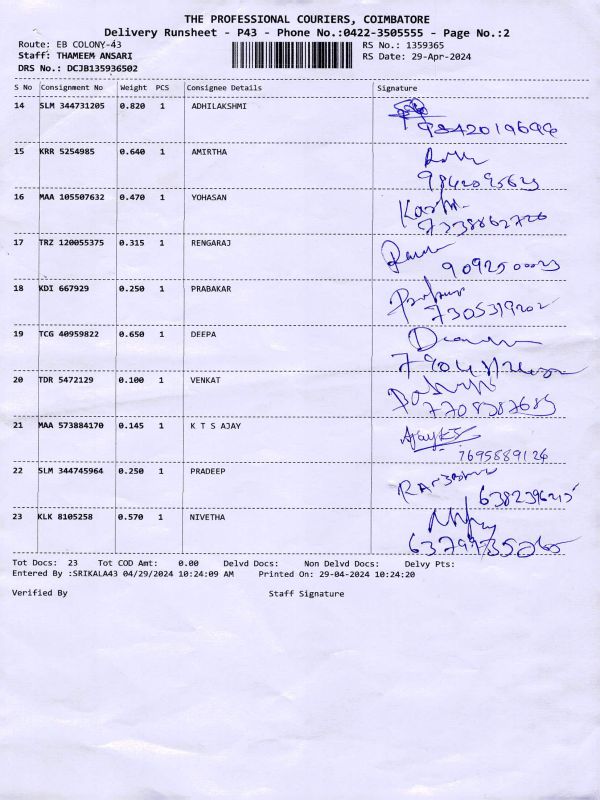 THE PROFESSIONAL COURIERS, COIMBATORE
Delivery Runsheet - P43 - Phone No.:0422-3505555 - Page No.:2
Route: EB COLONY-43 RS No.: 1359365
Staff: THAMEEM ANSARI RS Date: 29-Apr-2024
DRS No.: DCJB135936502
S No Consignment No Weight PCS Consignee Details Signature
14 SLM 344731205 0.820 1 ADHILAKSHMI
15 KRR 5254985 0.640 1 AMIRTHA
16 MAA 105507632 0.470 1 YOHASAN
7338862726
17 TRZ 120055375 0.315 1 RENGARAJ
18 KDI 667929 0.250 1 PRABAKAR
7305319202
19 TCG 40959822 0.650 1 DEEPA
20 TDR 5472129 0.100 1 VENKAT
21 MAA 573884170 0.145 1 K T S AJAY
7695889126
22 SLM 344745964 0.250 1 PRADEEP
23 KLK 8105258 0.570 1 NIVETHA
Tot Docs: 23 Tot COD Amt: 0.00 Delvd Docs: Non Delvd Docs: Delvy Pts:
Entered By :SRIKALA43 04/29/2024 10:24:09 AM Printed On: 29-04-2024 10:24:20
Verified By Staff Signature